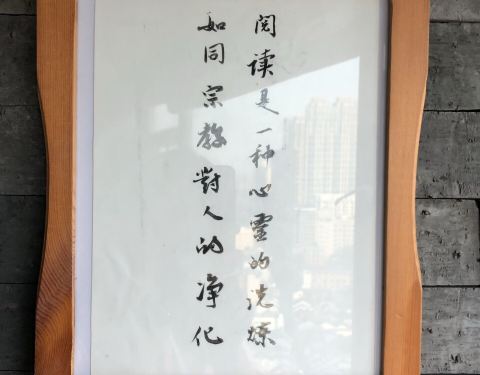 阅读是一种心靈的洗炼
如同宗教對人的净化